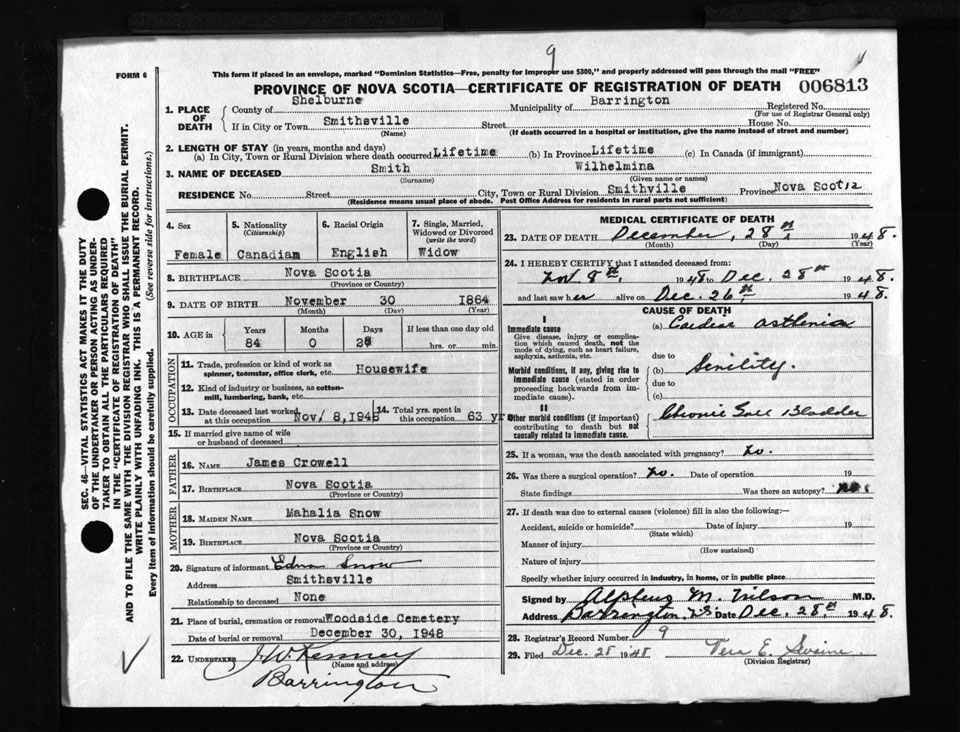 9
FORM 6
This form if placed in an envelope, marked "Dominion Statistics—Free, penalty for improper use $300," and properly addressed will pass through the mail "FREE"
PROVINCE OF NOVA SCOTIA—CERTIFICATE OF REGISTRATION OF DEATH 006813
1. PLACE OF DEATH County of Shelburne Municipality of Barrington Registered No.
(For use of Registrar General only)
If in City or Town Smithsville Street House No.
(Name) (If death occurred in a hospital or institution, give the name instead of street and number)
2. LENGTH OF STAY (in years, months and days)
(a) In City, Town or Rural Division where death occurred Lifetime (b) In Province Lifetime (c) In Canada (if immigrant)
3. NAME OF DECEASED Smith Wilhelmina
(Surname) (Given name or names)
RESIDENCE No. Street City, Town or Rural Division Smithville Province Nova Scotia
(Residence means usual place of abode. Post Office Address for residents in rural parts not sufficient)
4. Sex 5. Nationality (Citizenship) 6. Racial Origin 7. Single, Married, Widowed or Divorced (write the word)
Female Canadian English Widow
8. BIRTHPLACE Nova Scotia
(Province or Country)
9. DATE OF BIRTH November 30 1864
(Month) (Day) (Year)
10. AGE in Years Months Days If less than one day old
84 0 28 hrs. or min.
OCCUPATION
11. Trade, profession or kind of work as spinner, teamster, office clerk, etc. Housewife
12. Kind of industry or business, as cotton-mill, lumbering, bank, etc.
13. Date deceased last worked at this occupation Nov/ 8,1948 14. Total yrs. spent in this occupation 63 yrs
15. If married give name of wife or husband of deceased
FATHER
16. NAME James Crowell
17. BIRTHPLACE Nova Scotia
(Province or Country)
MOTHER
18. MAIDEN NAME Mahalia Snow
19. BIRTHPLACE Nova Scotia
(Province or Country)
20. Signature of informant Edna Snow
Address Smithsville
Relationship to deceased None
21. Place of burial, cremation or removal Woodside Cemetery
Date of burial or removal December 30, 1948
22. UNDERTAKER J. W. Kenney
(Name and address)
Barrington
MEDICAL CERTIFICATE OF DEATH
23. DATE OF DEATH December, 28th, 1948.
(Month) (Day) (Year)
24. I HEREBY CERTIFY that I attended deceased from:
Nov 8th, 1948 to Dec. 28th 1948.
and last saw her alive on Dec. 26th 1948.
CAUSE OF DEATH
I
Immediate cause
Give disease, injury or complication which caused death, not the mode of dying, such as heart failure, asphyxia, asthenia, etc.
(a) Cardiac asthenia
due to
Morbid conditions, if any, giving rise to immediate cause (stated in order proceeding backwards from immediate cause).
(b) Senility.
due to
(c)
II
Other morbid conditions (if important) contributing to death but not causally related to immediate cause.
Chronic Gall Bladder
25. If a woman, was the death associated with pregnancy? No.
26. Was there a surgical operation? No. Date of operation 19
State findings Was there an autopsy?
27. If death was due to external causes (violence) fill in also the following:—
Accident, suicide or homicide? Date of injury 19
(State which)
Manner of injury
(How sustained)
Nature of injury
Specify whether injury occurred in industry, in home, or in public place
Signed by Alpheus M. Wilson M.D.
Address Barrington, N.S. Date Dec. 28th 1948.
28. Registrar's Record Number 9
29. Filed Dec. 28 1948 E. Swaine
(Division Registrar)
SEC. 46—VITAL STATISTICS ACT MAKES IT THE DUTY
OF THE UNDERTAKER OR PERSON ACTING AS UNDER-
TAKER TO OBTAIN ALL THE PARTICULARS REQUIRED
IN THE "CERTIFICATE OF REGISTRATION OF DEATH"
AND TO FILE THE SAME WITH THE DIVISION REGISTRAR WHO SHALL ISSUE THE BURIAL PERMIT.
WRITE PLAINLY WITH UNFADING INK. THIS IS A PERMANENT RECORD.
Every item of information should be carefully supplied. (See reverse side for instructions.)